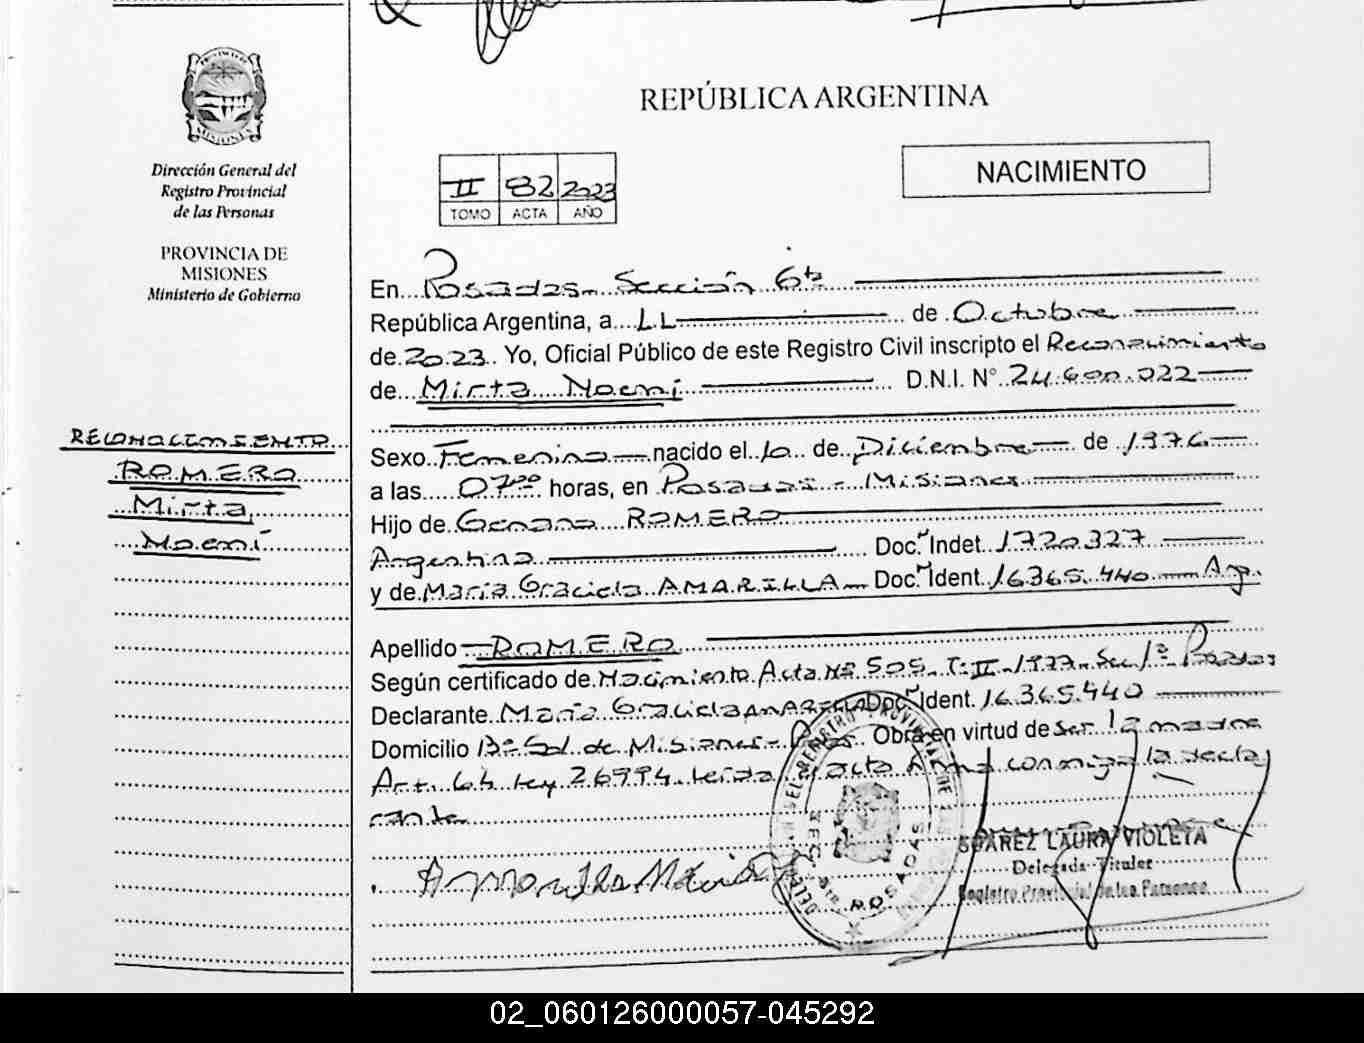 REPÚBLICA ARGENTINA
Dirección General del
Registro Provincial
de las Personas
PROVINCIA DE
MISIONES
Ministerio de Gobierno
NACIMIENTO
II 82 2023
TOMO ACTA AÑO
RECONOCIMIENTO
ROMERO
Mirta
Noemí
En Posadas Sección 6ta
República Argentina, a de Octubre
de 2023 Yo, Oficial Público de este Registro Civil inscripto el Reconocimiento
de Mirta Noemí D.N.I. N° 24.600.022
Sexo Femenino nacido el 10 de Diciembre de 1976
a las 07 horas, en Posadas - Misiones
Hijo de Genaro ROMERO
Argentino Doc. Indet. 1720327
y de María Graciela AMARILLA Doc. Ident. 16365.440 Arg.
Apellido ROMERO
Según certificado de Nacimiento Acta Nº 505 T: II 1977 Sec 1ª Posadas
Declarante María Graciela AMARILLA Doc. Ident. 16.365.440
Domicilio Bº Sol de Misiones - Obra en virtud de ser la madre
Art. 64 ley 26994 leída acta firma conmigo la decla
rante
Amarilla María
DEL REGISTRO PROVINCIAL DE LAS
SEC.
POSADAS
SUAREZ LAURA VIOLETA
Delegada Titular
Registro Provincial de las Personas
02_060126000057-045292